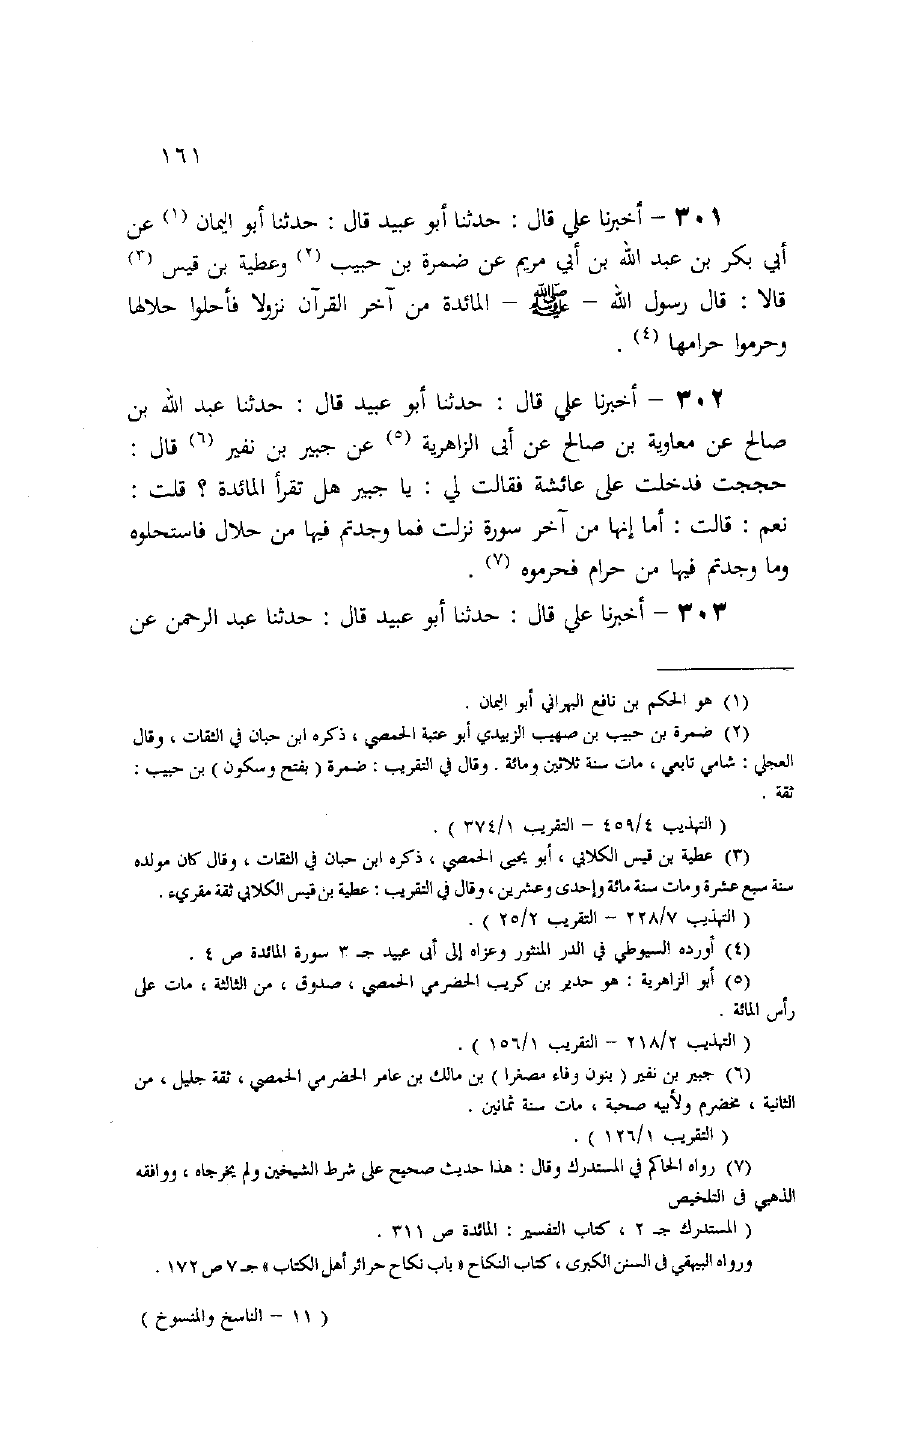 ١٦١
٣٠١ – أخبرنا علي قال : حدثنا أبو عبيد قال : حدثنا أبو اليمان (١) عن
أبي بكر بن عبد الله بن أبي مريم عن ضمرة بن حبيب (٢) وعطية بن قيس (٣)
قالا : قال رسول الله – ﷺ – المائدة من آخر القرآن نزولا فأحلوا حلالها
وحرموا حرامها (٤) .
٣٠٢ – أخبرنا علي قال : حدثنا أبو عبيد قال : حدثنا عبد الله بن
صالح عن معاوية بن صالح عن أبى الزاهرية (٥) عن جبير بن نفير (٦) قال :
حججت فدخلت على عائشة فقالت لي : يا جبير هل تقرأ المائدة ؟ قلت :
نعم : قالت : أما إنها من آخر سورة نزلت فما وجدتم فيها من حلال فاستحلوه
وما وجدتم فيها من حرام فحرموه (٧) .
٣٠٣ – أخبرنا علي قال : حدثنا أبو عبيد قال : حدثنا عبد الرحمن عن
(١) هو الحكم بن نافع البهراني أبو اليمان .
(٢) ضمرة بن حبيب بن صهيب الزبيدي أبو عتبة الحمصي ، ذكره ابن حبان في الثقات ، وقال
العجلي : شامي تابعي ، مات سنة ثلاثين ومائة . وقال في التقريب : ضمرة ( بفتح وسكون ) بن حبيب :
ثقة .
( التهذيب ٤٥٩/٤ – التقريب ٣٧٤/١ ) .
(٣) عطية بن قيس الكلابي ، أبو يحيى الحمصي ، ذكره ابن حبان في الثقات ، وقال كان مولده
سنة سبع عشرة ومات سنة مائة وإحدى وعشرين ، وقال في التقريب : عطية بن قيس الكلابي ثقة مقريء .
( التهذيب ٢٢٨/٧ – التقريب ٢٥/٢ ) .
(٤) أورده السيوطي في الدر المنثور وعزاه إلى أبى عبيد جـ ٣ سورة المائدة ص ٤ .
(٥) أبو الزاهرية : هو حدير بن كريب الحضرمي الحمصي ، صدوق ، من الثالثة ، مات على
رأس المائة .
( التهذيب ٢١٨/٢ – التقريب ١٥٦/١ ) .
(٦) جبير بن نفير ( بنون وفاء مصغرا ) بن مالك بن عامر الحضرمي الحمصي ، ثقة جليل ، من
الثانية ، مخضرم ولأبيه صحبة ، مات سنة ثمانين .
( التقريب ١٢٦/١ ) .
(٧) رواه الحاكم في المستدرك وقال : هذا حديث صحيح على شرط الشيخين ولم يخرجاه ، ووافقه
الذهبي فى التلخيص
( المستدرك جـ ٢ ، كتاب التفسير : المائدة ص ٣١١ .
ورواه البيهقي فى السنن الكبرى ، كتاب النكاح « باب نكاح حرائر أهل الكتاب » جـ ٧ ص ١٧٢ .
( ١١ – الناسخ والمنسوخ )